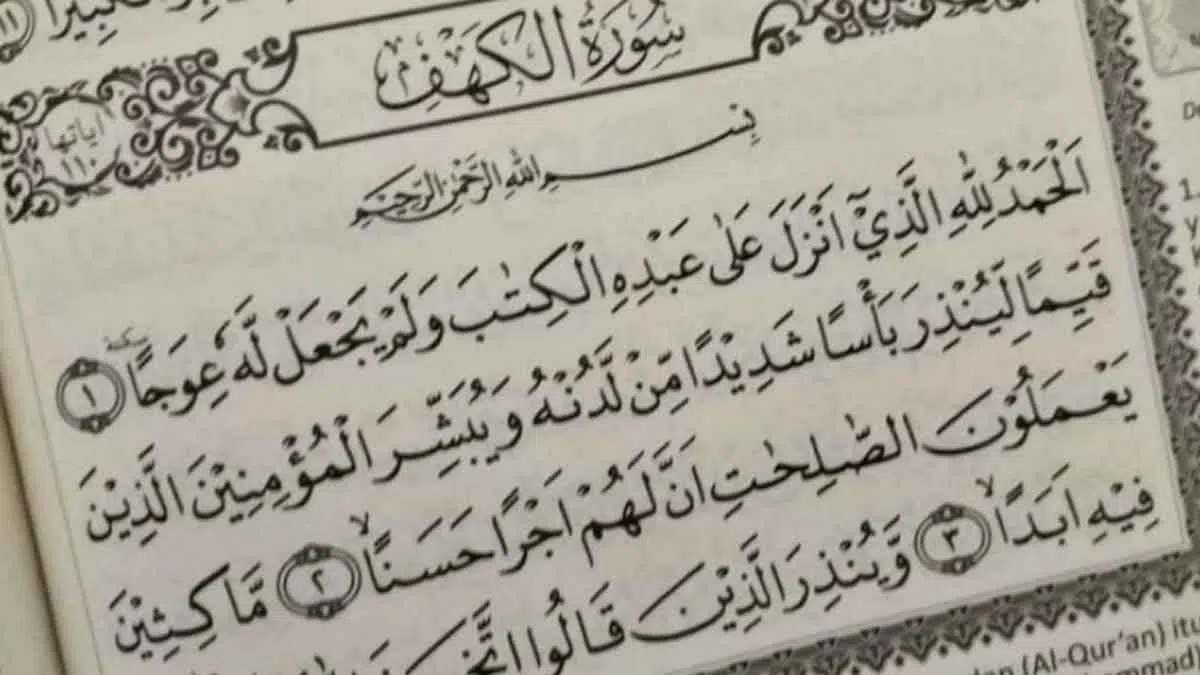 سُوْرَةُ الْكَهْفِ
اياتها
١١٠
بِسْمِ اللهِ الرَّحْمٰنِ الرَّحِيْمِ
اَلْحَمْدُ لِلّٰهِ الَّذِيْٓ اَنْزَلَ عَلٰى عَبْدِهِ الْكِتٰبَ وَلَمْ يَجْعَلْ لَّهٗ عِوَجًا ۜ ١
قَيِّمًا لِّيُنْذِرَ بَأْسًا شَدِيْدًا مِّنْ لَّدُنْهُ وَيُبَشِّرَ الْمُؤْمِنِيْنَ الَّذِيْنَ
يَعْمَلُوْنَ الصّٰلِحٰتِ اَنَّ لَهُمْ اَجْرًا حَسَنًاۙ ٢ مَّاكِثِيْنَ
فِيْهِ اَبَدًاۙ ٣ وَّيُنْذِرَ الَّذِيْنَ قَالُوا
(Al-Qur'an) itu